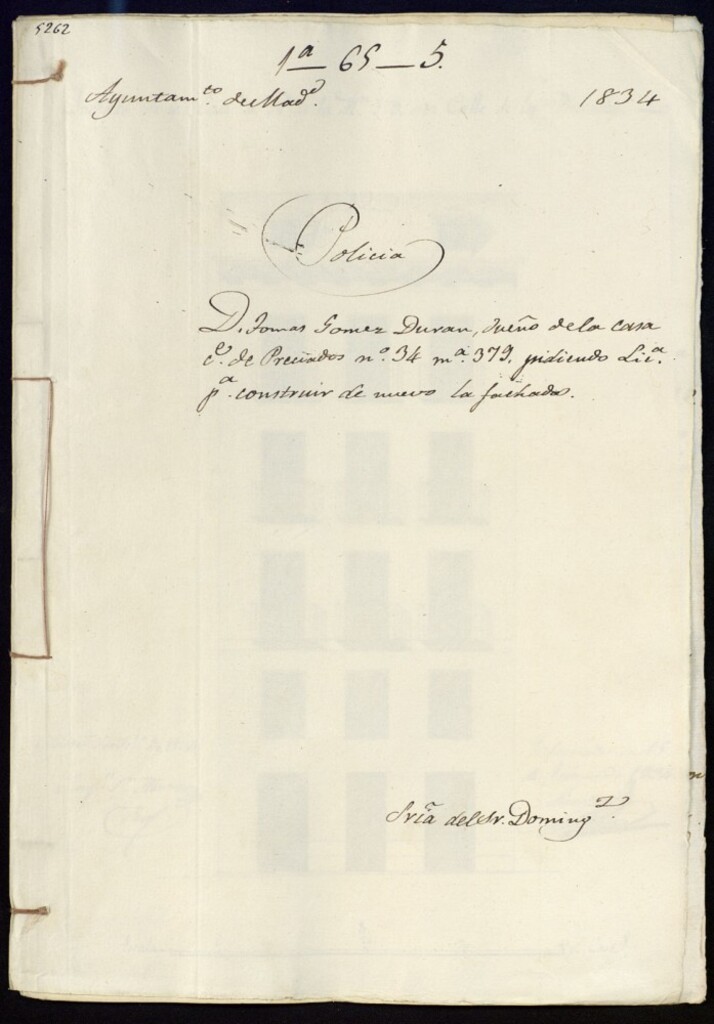 5262
1ª — 65 — 5.
Ayuntam.to de Mad.d 1834
Policia
D. Tomas Gomez Duran, dueño dela casa
c.e de Preciados nº. 34 mª. 379. pidiendo Lic.ª
p.ª construir de nuevo la fachada.
Sria del Sr. Doming.z